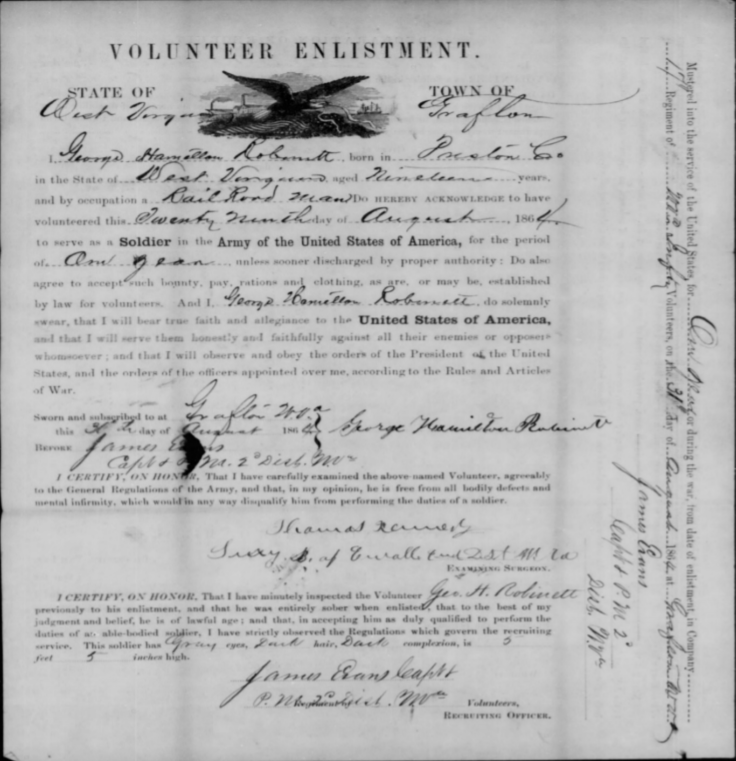 VOLUNTEER ENLISTMENT.
STATE OF TOWN OF
West Virginia Grafton
I, George Hamilton Robinett, born in Preston Co
in the State of West Virginia, aged Nineteen years,
and by occupation a Rail Road Man Do HEREBY ACKNOWLEDGE to have
volunteered this Twenty Ninth day of August 1864,
to serve as a Soldier in the Army of the United States of America, for the period
of One year, unless sooner discharged by proper authority: Do also
agree to accept such bounty, pay, rations and clothing, as are, or may be, established
by law for volunteers. And I, George Hamilton Robinett, do solemnly
swear, that I will bear true faith and allegiance to the United States of America,
and that I will serve them honestly and faithfully against all their enemies or opposers
whomsoever; and that I will observe and obey the orders of the President of the United
States, and the orders of the officers appointed over me, according to the Rules and Articles
of War.
Sworn and subscribed to at Grafton W Va
this day of August 1864 George Hamilton Robinett
BEFORE James Evans
Capt & P.M. 2d Dist. W Va
I CERTIFY, ON HONOR, That I have carefully examined the above named Volunteer, agreeably
to the General Regulations of the Army, and that, in my opinion, he is free from all bodily defects and
mental infirmity, which would in any way disqualify him from performing the duties of a soldier.
Thomas Kennedy
Surg. B. of Enrollment 2 Dist W Va
EXAMINING SURGEON.
I CERTIFY, ON HONOR, That I have minutely inspected the Volunteer Geo. H. Robinett
previously to his enlistment, and that he was entirely sober when enlisted; that to the best of my
judgment and belief, he is of lawful age; and that, in accepting him as duly qualified to perform the
duties of an able-bodied soldier, I have strictly observed the Regulations which govern the recruiting
service. This soldier has Gray eyes, Dark hair, Dark complexion, is 5
feet 5 inches high.
James Evans Capt &
P. M. 2d Dist. W Va Volunteers,
RECRUITING OFFICER.
Mustered into the service of the United States, for One Year or during the war, from date of enlistment, in Company
17 Regiment of W Va Infty Volunteers, on the 31st day of August 1864, at Grafton W Va
James Evans
Capt & P M 2d
Dist. W Va